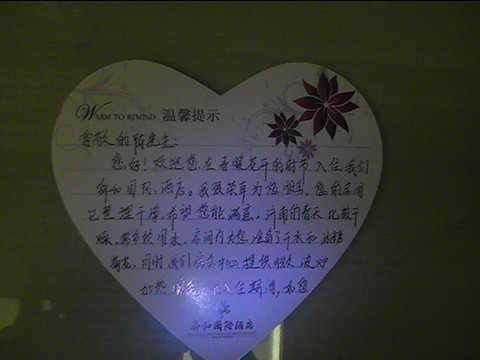 WARM TO REMIND 温馨提示
尊敬的 先生:
您好!欢迎您在春暖花开的时节入住我们
舜和国际酒店。我很荣幸为您服务,您的房间
已整理干净,希望您能满意。济南的春天比较干
燥,需多饮用水,房间内为您准备了开水和
同时我们 提供
加 入住期间,如您
舜和国际酒店